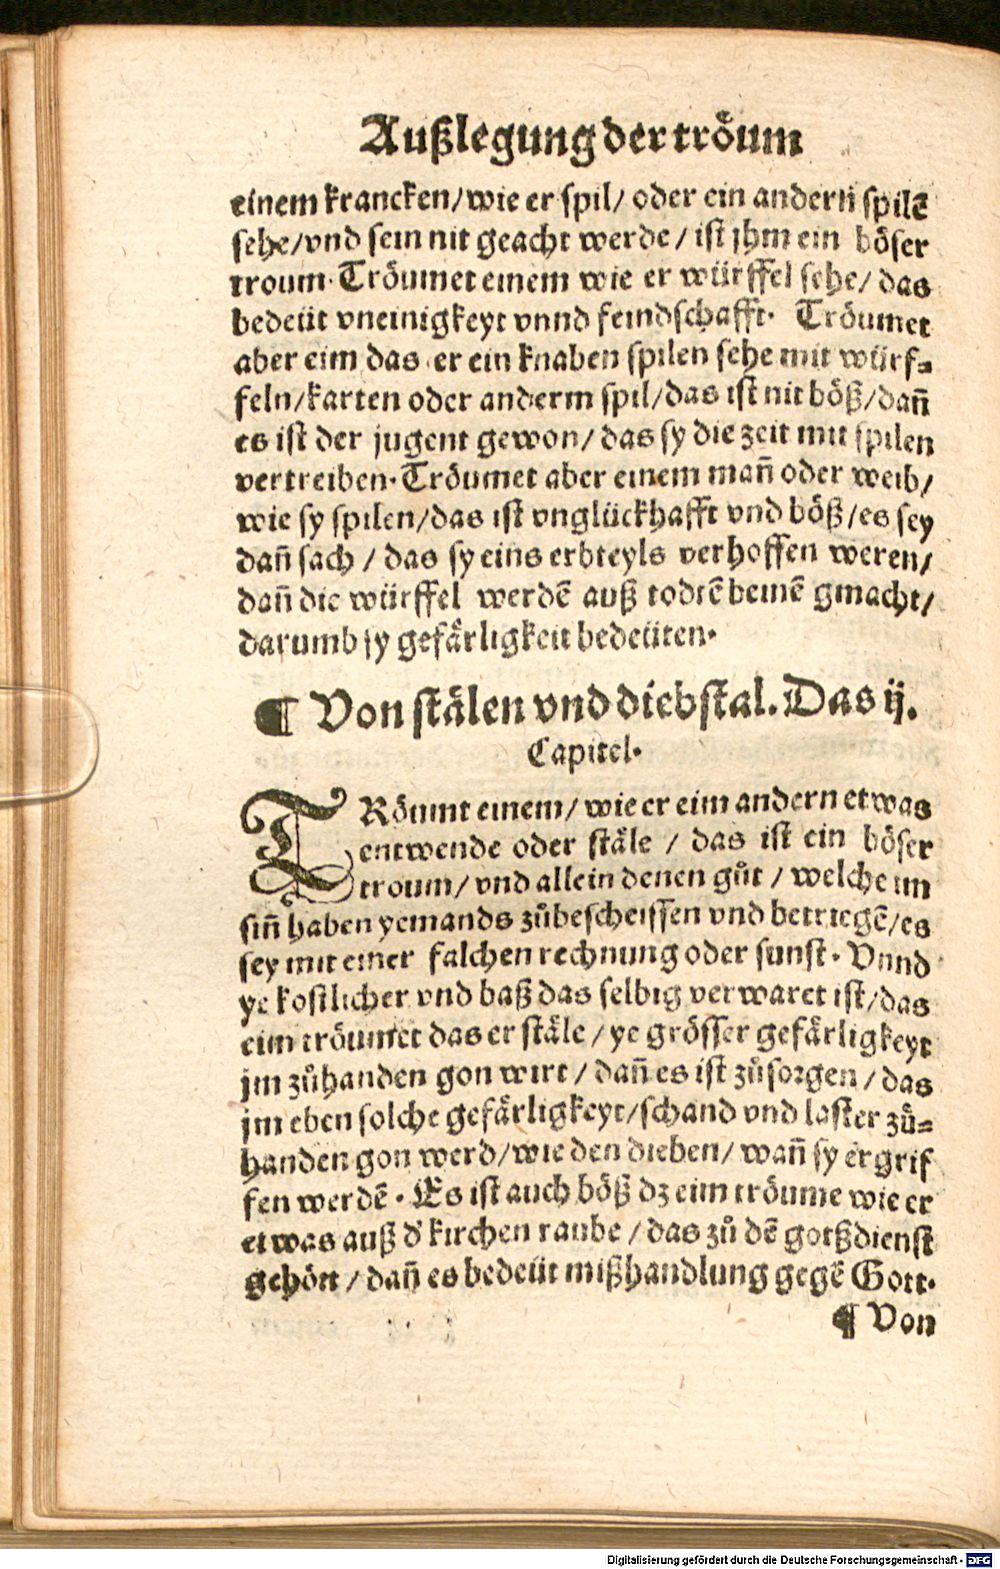 Außlegung der tröum
einem krancken/wie er spil/ oder ein andern spilē
sehe/vnd sein nit geacht werde / ist jhm ein böser
troum. Tröumet einem wie er würffel sehe/ das
bedeüt vneinigkeyt vnnd feindschafft. Tröumet
aber eim das er ein knaben spilen sehe mit würf=
feln/karten oder anderm spil/das ist nit böß/dañ
es ist der jugent gewon/ das sy die zeit mit spilen
vertreiben. Tröumet aber einem mañ oder weib/
wie sy spilen/das ist vnglückhafft vnd böß/es sey
dañ sach / das sy eins erbteyls verhoffen weren/
dañ die würffel werdē auß todtē beinē gmacht/
darumb sy gefärligkeit bedeüten.
¶ Von stälen vnd diebstal. Das ij.
Capitel.
TRöumt einem/ wie er eim andern etwas
entwende oder stäle / das ist ein böser
troum/ vnd allein denen gůt / welche im
siñ haben yemands zůbescheissen vnd betriegē/es
sey mit einer falchen rechnung oder sunst. Vnnd
ye kostlicher vnd baß das selbig verwaret ist/das
eim tröumet das er stäle / ye grösser gefärligkeyt
jm zůhanden gon wirt / dañ es ist zůsorgen / das
jm eben solche gefärligkeyt/schand vnd laster zů=
handen gon werd/wie den dieben/ wañ sy ergrif
fen werdē. Es ist auch böß dz eim tröume wie er
etwas auß d' kirchen raube / das zů dē gotßdienst
gehört / dañ es bedeüt mißhandlung gegē Gott.
¶ Von
Digitalisierung gefördert durch die Deutsche Forschungsgemeinschaft - DFG